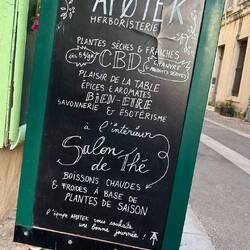 APØTEK
HERBORISTERIE
PLANTES SÈCHES & FRAÎCHES
CBD
CHANVRE
& PRODUITS DÉRIVÉS
PLAISIR DE LA TABLE
ÉPICES & AROMATES
BIEN-ETRE
SAVONNERIE & ÉSOTÉRISME
à l'intérieur
Salon
de Thé
BOISSONS CHAUDES
& FROIDES À BASE DE
PLANTES DE SAISON
L'équipe APØTEK vous souhaite
une bonne journée !